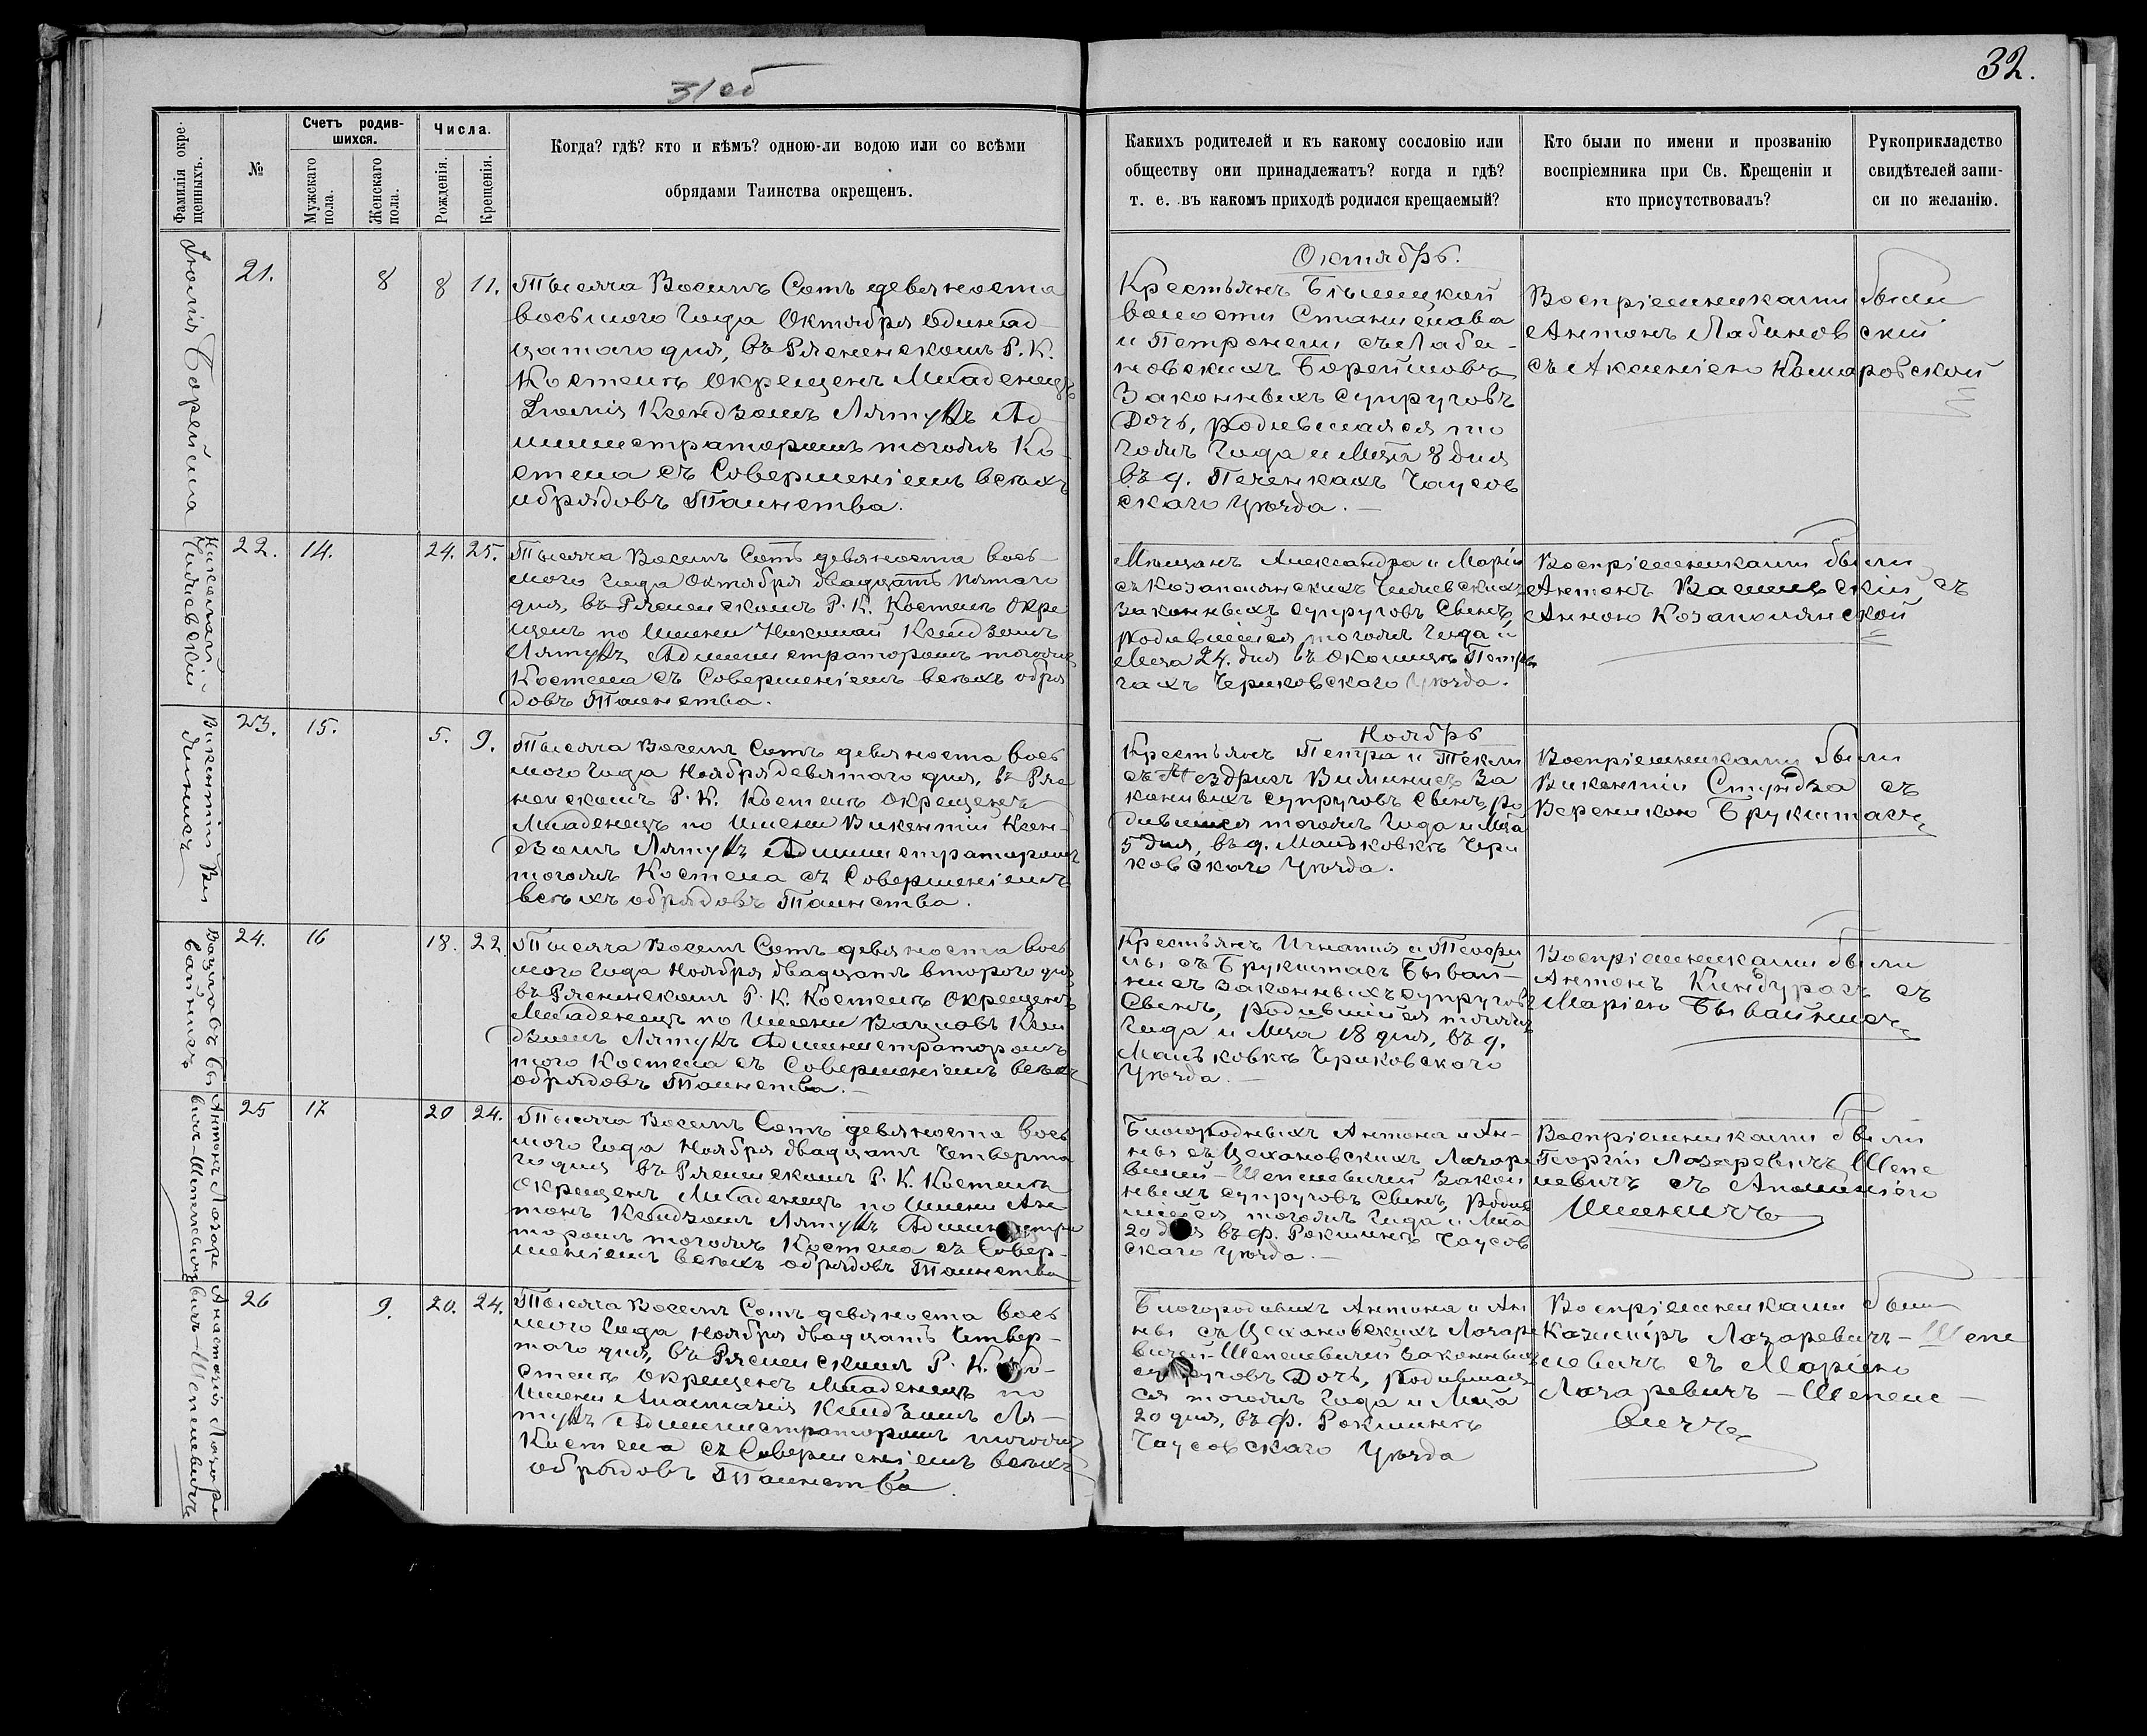 31 об
32.
Фамилія окрещенныхъ.
№
Счетъ родив-
шихся.
Мужскаго пола.
Женскаго пола.
Числа.
Рожденія.
Крещенія.
Когда? гдѣ? кто и кѣмъ? одною-ли водою или со всѣми
обрядами Таинства окрещенъ.
Какихъ родителей и къ какому сословію или
обществу они принадлежатъ? когда и гдѣ?
т. е. въ какомъ приходѣ родился крещаемый?
Кто были по имени и прозванію
воспріемника при Св. Крещеніи и
кто присутствовалъ?
Рукоприкладство
свидѣтелей запи-
си по желанію.
Борейша
21.
8
8
11.
Тысяча Восемъ Сотъ девяноста
восьмого Года Октября одинад
цатаго дня, въ Рясненскомъ Р. К.
Костелѣ Окрещенъ Младенецъ
Ксендзомъ Лятукъ Ад
министраторомъ тогожъ Ко
стела съ Совершеніемъ всѣхъ
обрядовъ Таинства.
Октябрь.
Крестьянъ
волости Станислава
и Петронели съ Лаби-
новскихъ Борейшовъ
Законныхъ супруговъ
Дочь, родившаяся то
гожъ Года и Мца 8 дня
въ д. Печенкахъ Чаусов
скаго Уѣзда. —
Воспріемниками были
Антонъ Лабиновскій
съ Комаровской
Николай
Чиляевскій
22.
14.
24.
25.
Тысяча Восемъ Сотъ девяноста вось-
мого Года Октября двадцать пятаго
дня, въ Рясненскомъ Р. К. Костелѣ Окре
щенъ по Имени Николай Ксендзомъ
Лятукъ Администраторомъ тогожъ
Костела съ Совершеніемъ всѣхъ обря
довъ Таинства.
Мѣщанъ Александра и Маріи
съ Козаполянскихъ Чиляевскихъ
законныхъ супруговъ Сынъ,
родившійся тогожъ Года и
Мца 24. дня въ Околицѣ
Чериковскаго Уѣзда.
Воспріемниками были
Антонъ съ
Анною Козаполянской
Викентій Вил
23.
15.
5.
9.
Тысяча Восемъ Сотъ девяноста вось
мого Года Ноября девятаго дня, въ Ряс
ненскомъ Р. К. Костелѣ Окрещенъ
Младенецъ по Имени Викентій Ксен-
дзомъ Лятукъ Администраторомъ
тогожъ Костела съ Совершеніемъ
всѣхъ обрядовъ Таинства.
Ноябрь
Крестьянъ Петра и Текли
съ За
конныхъ супруговъ Сынъ, ро
дившійся тогожъ Года и Мца
5 дня, въ д. Маньковкѣ Чери
ковскаго Уѣзда.
Воспріемниками были
Викентій Стундза съ
Вероникою Брукштасъ
Вацлавъ Бы
вайнисъ
24.
16
18.
22
Тысяча Восемъ Сотъ девяноста вось
мого Года Ноября двадцать второго дня
въ Рясненскомъ Р. К. Костелѣ Окрещенъ
Младенецъ по Имени Вацлавъ Ксен
дзомъ Лятукъ Администраторомъ
того Костела съ Совершеніемъ всѣхъ
обрядовъ Таинства. —
Крестьянъ Игнатія и Теофи
лы съ Брукштасъ Бывай-
нисъ законныхъ супруговъ
Сынъ, родившійся тогожъ
Года и Мца 18 дня, въ д.
Маньковкѣ Чериковскаго
Уѣзда. —
Воспріемниками были
Антонъ съ
Маріею Бывайнисъ
Антонъ Лазаре
вичъ-Шепелевичъ
25
17
20
24.
Тысяча Восемъ Сотъ девяноста вось
мого Года Ноября двадцать Четверта
го дня въ Рясненскомъ Р. К. Костелѣ
Окрещенъ Младенецъ по Имени Ан
тонъ Ксендзомъ Лятукъ Администра
торомъ тогожъ Костела съ Совер-
шеніемъ всѣхъ обрядовъ Таинства
Благородныхъ Антона и Ан-
ны съ Цехановскихъ Лазаре
вичей-Шепелевичей Закон
ныхъ супруговъ Сынъ, родив
шійся тогожъ Года и Мца
20 дня въ ф. Рокшинѣ Чаусов
скаго Уѣзда. —
Воспріемниками были
Георгій Лазаревичъ Шепе
левичъ съ
Анастасія Лазаре
вичъ-Шепелевичъ
26
9.
20.
24.
Тысяча Восемъ Сотъ девяноста вось
мого Года Ноября двадцать Четвер-
таго дня, въ Рясненскомъ Р. К. Ко-
стелѣ Окрещенъ Младенецъ по
Имени Анастасія Ксендзомъ Ля-
тукъ Администраторомъ тогожъ
Костела съ Совершеніемъ всѣхъ
обрядовъ Таинства.
Благородныхъ Антона и Ан
ны съ Цехановскихъ Лазаре
вичей-Шепелевичей Законныхъ
супруговъ Дочь, родившая
ся тогожъ Года и Мца
20 дня, въ ф. Рокшинѣ
Чаусовскаго Уѣзда
Воспріемниками были
Казиміръ Лазаревичъ-Шепе
левичъ съ Маріею
Лазаревичъ-Шепеле-
вичъ